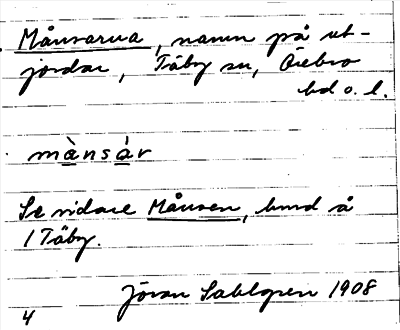 Månsarna, namn på ut-
jordar, Täby sn, Örebro
hd o. l.
mànsár
Se vidare Månsen, hmd å
1 Täby.
Jöran Sahlgren 1908
4